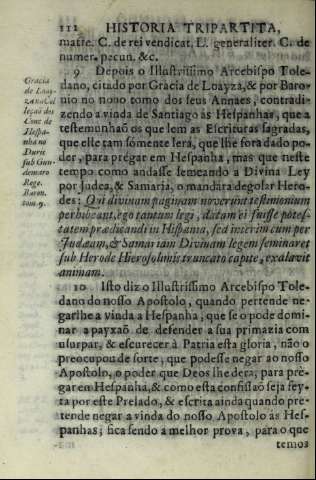 112 HISTORIA TRIPARTITA,
matre. C. de rei vendicat. L. generaliter. C. de
numer. pecun. &c.
9 Depois o Illustrissimo Arcebispo Tole-
dano, citado por Gracia de Loayza, & por Baro-
nio no nono tomo dos seus Annaes, contradi-
zendo a vinda de Santiago às Hespanhas, que a
testemunhaõ os que lem as Escrituras sagradas,
que elle tam sómente lerá, que lhe fora dado po-
der, para prégar em Hespanha, mas que neste
tempo como andasse semeando a Divina Ley
por Judea, & Samaria, o mandára degolar Hero-
des: Qui divinam paginam noverunt testimonium
perhibeant, ego tantum legi, datam ei fuisse potes-
tatem prædicandi in Hispania, sed interim cum per
Judæam, & Samariam Divinam legem seminaret
sub Herode Hierosolimis truncato capite, exalavit
animam.
10 Isto diz o Illustrissimo Arcebispo Tole-
dano do nosso Apostolo, quando pertende ne-
garlhe a vinda a Hespanha, que se o pode domi-
nar a payxaõ de defender a sua primazia com
usurpar, & escurecer à Patria esta gloria, não o
preocupou de sorte, que podesse negar ao nosso
Apostolo, o poder que Deos lhe dera, para prè-
gar em Hespanha, & como esta confissaõ seja fey-
ta por este Prelado, & escrita ainda quando pre-
tende negar a vinda do nosso Apostolo às Hes-
panhas; fica sendo a melhor prova, para o que
temos
Gracia
de Loay-
za na Col
leçaõ dos
Conc de
Hespa-
nha no
Durit
sub Gun-
demaro
Rege.
Baron.
tom. 9.